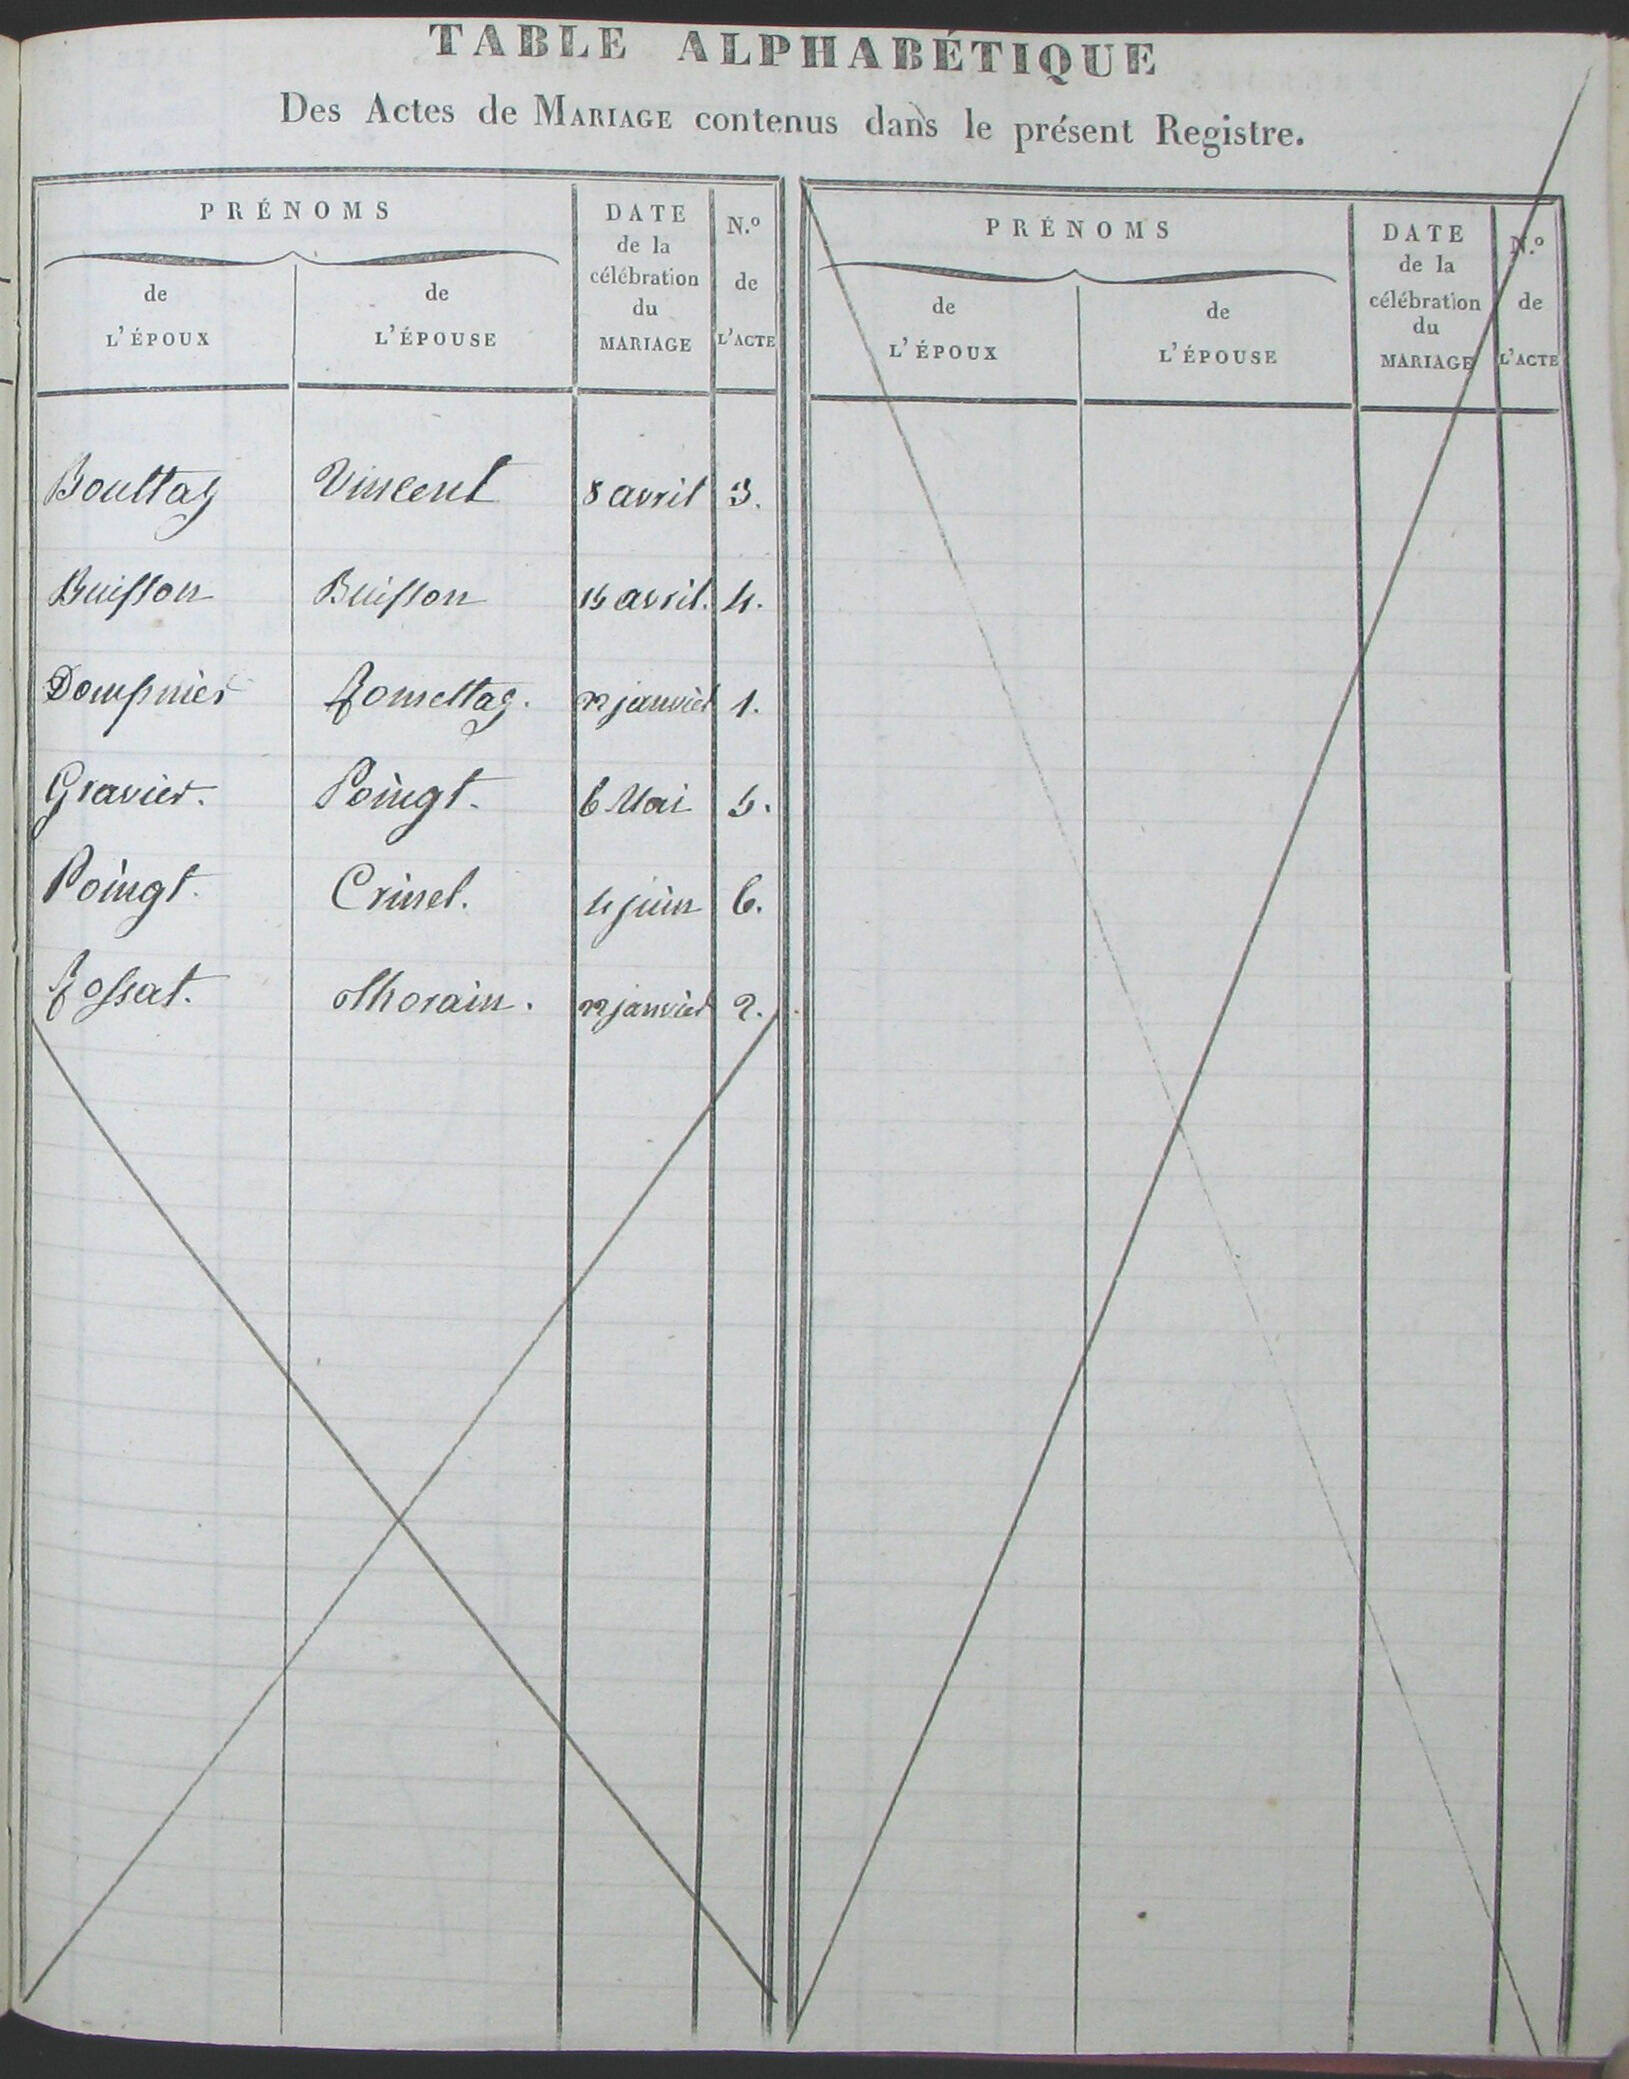 TABLE ALPHABÉTIQUE
Des Actes de MARIAGE contenus dans le présent Registre.
PRÉNOMS
de L'ÉPOUX
de L'ÉPOUSE
DATE de la célébration du MARIAGE
N.º de L'ACTE
Buisson Buisson 15 avril. 4.
Dompnier 22 janvier 1.
Gravier. Poingt. 6 Mai 5.
Poingt. Crinel. 4 juin 6.
Rossat. Thorain. 22 janvier 2.
Vincent 8 avril 3.
PRÉNOMS
de L'ÉPOUX
de L'ÉPOUSE
DATE de la célébration du MARIAGE
N.º de L'ACTE